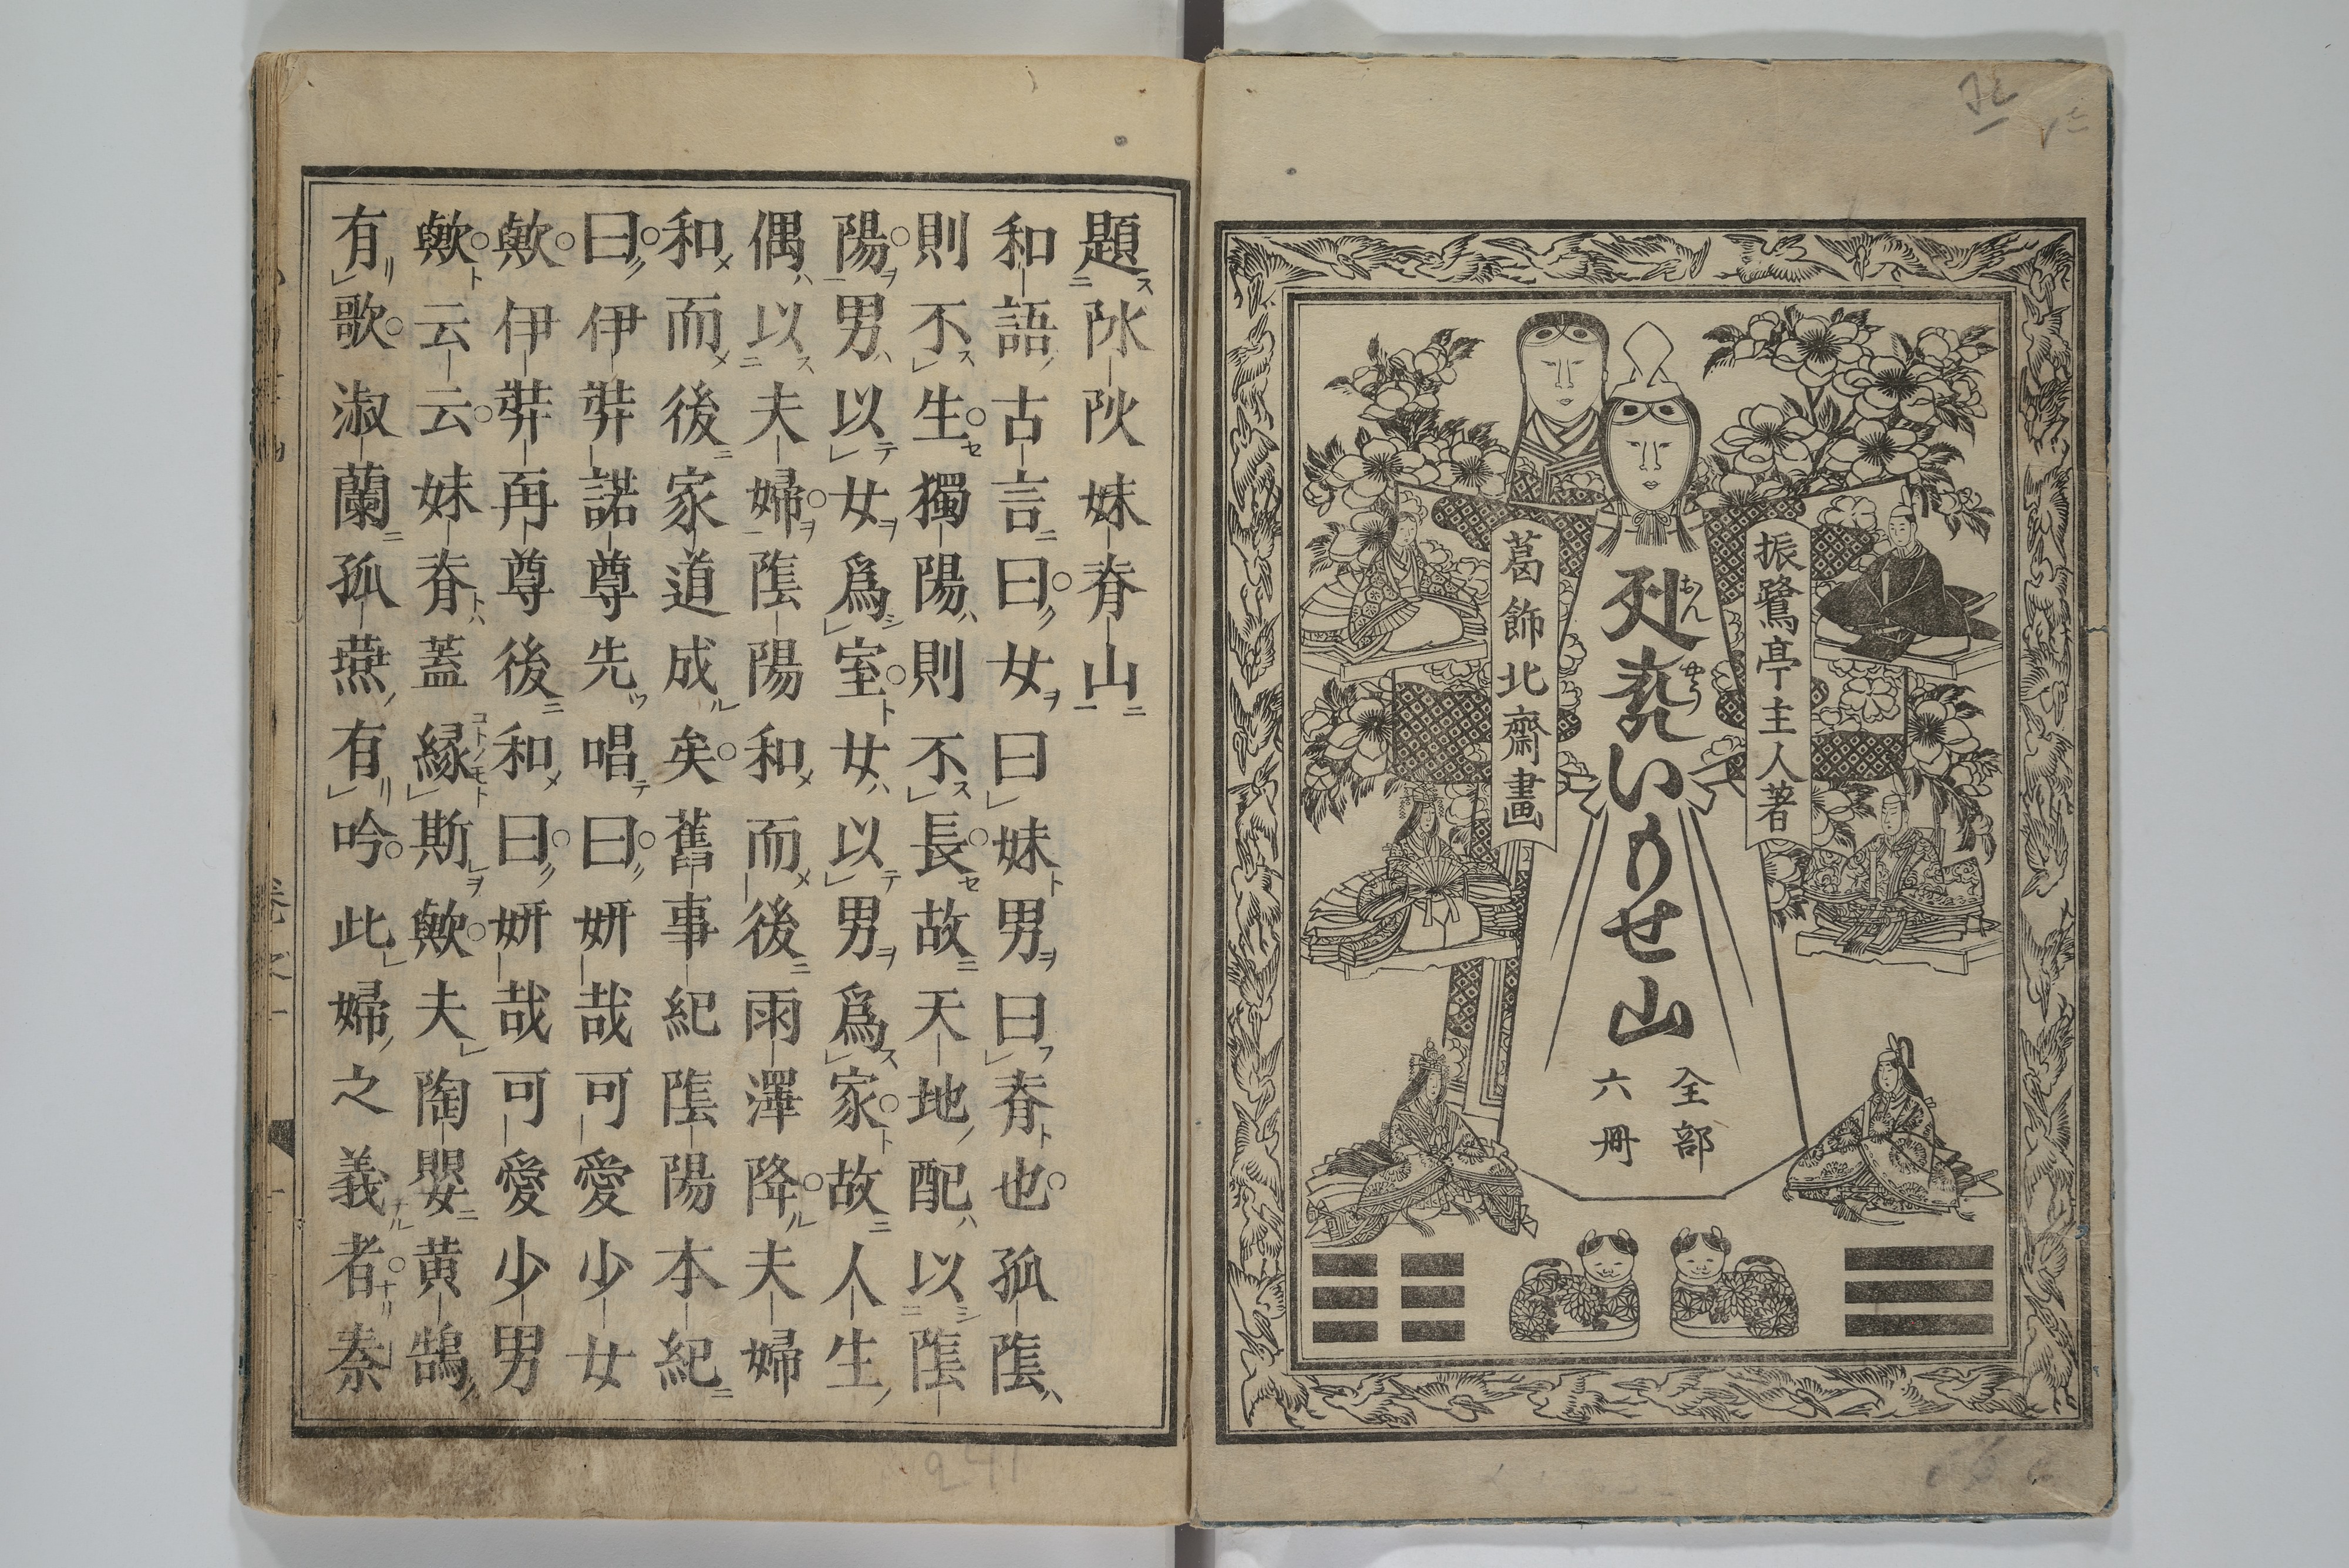 振鷺亭主人著
いもせ山
おんやう
全部
六冊
葛飾北齋畫
題妹脊山
和語古言曰女曰妹男曰脊也孤陰
則不生獨陽則不長故天地配以陰
陽男以女爲室女以男爲家故人生
偶以夫婦陰陽和而後雨澤降夫婦
和而後家道成矣舊事紀陰陽本紀
曰伊弉諾尊先唱曰妍哉可愛少女
歟伊弉再尊後和曰妍哉可愛少男
歟云云妹脊蓋縁斯歟夫陶嬰黄鵠
有歌淑蘭孤燕有吟此婦之義者秦